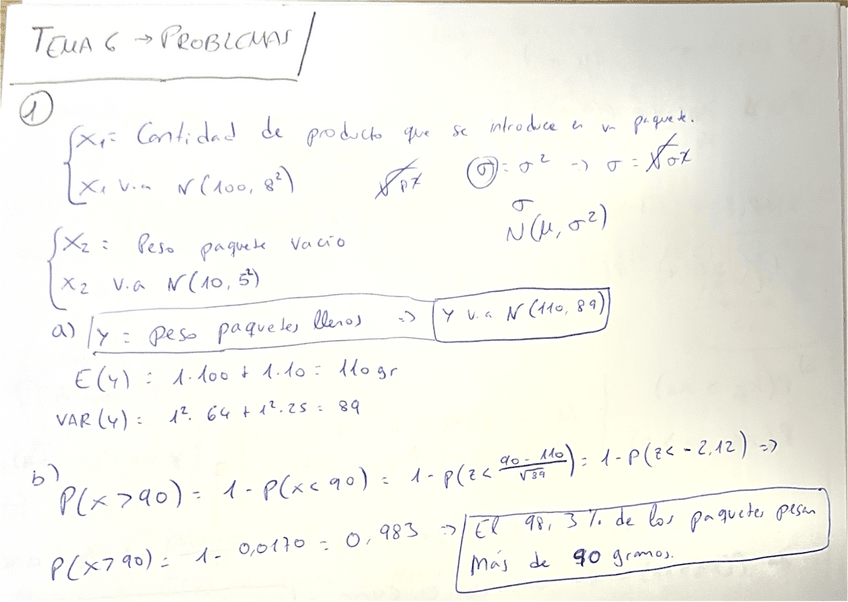 TEMA 6 → PROBLEMAS
1
X1 = Cantidad de producto que se introduce en un paquete.
X1 v.a N(100, 8²) σ = σ² → σ =
σ
N(μ, σ²)
X2 = Peso paquete vacio
X2 v.a N(10, 5²)
a) Y = peso paquetes llenos => Y v.a N(110, 89)
E(Y) = 1·100 + 1·10 = 110 gr
VAR(Y) = 1²· 64 + 1²·25 = 89
b)
P(X > 90) = 1 - P(X < 90) = 1 - P(Z < 90 - 110 / √89) = 1 - P(Z < - 2,12) =>
P(X > 90) = 1 - 0,0170 = 0,983 => El 98,3% de los paquetes pesan
más de 90 gramos.